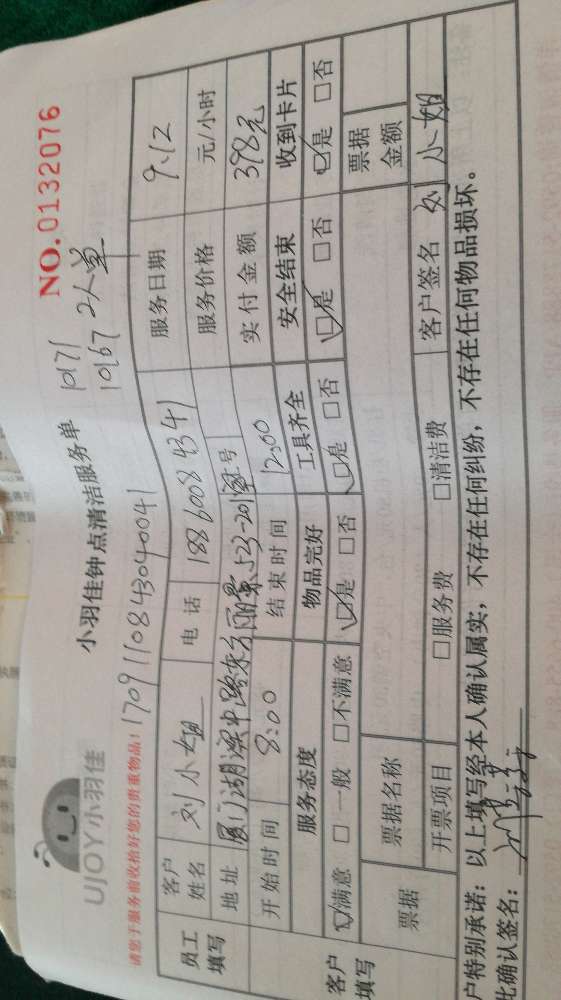 NO.0132076
UJOY小羽佳
小羽佳钟点清洁服务单
10171
10167 2人单
请您于服务前收拾好您的贵重物品!
1709110843040041
员工填写
客户姓名 刘小姐 电话 18860084341 服务日期 9.12
服务价格 元/小时
地址 厦门湖滨中路东方丽景523-201室 证号 实付金额 398元
开始时间 8:00 结束时间 12:00
客户填写
服务态度 物品完好 工具齐全 安全结束 收到卡片
☑满意 □一般 □不满意 ☑是 □否 ☑是 □否 ☑是 □否 ☑是 □否
票据 票据名称 票据金额
开票项目 □服务费 □清洁费 客户签名 刘小姐
户特别承诺:以上填写经本人确认属实,不存在任何纠纷,不存在任何物品损坏。
此确认签名: